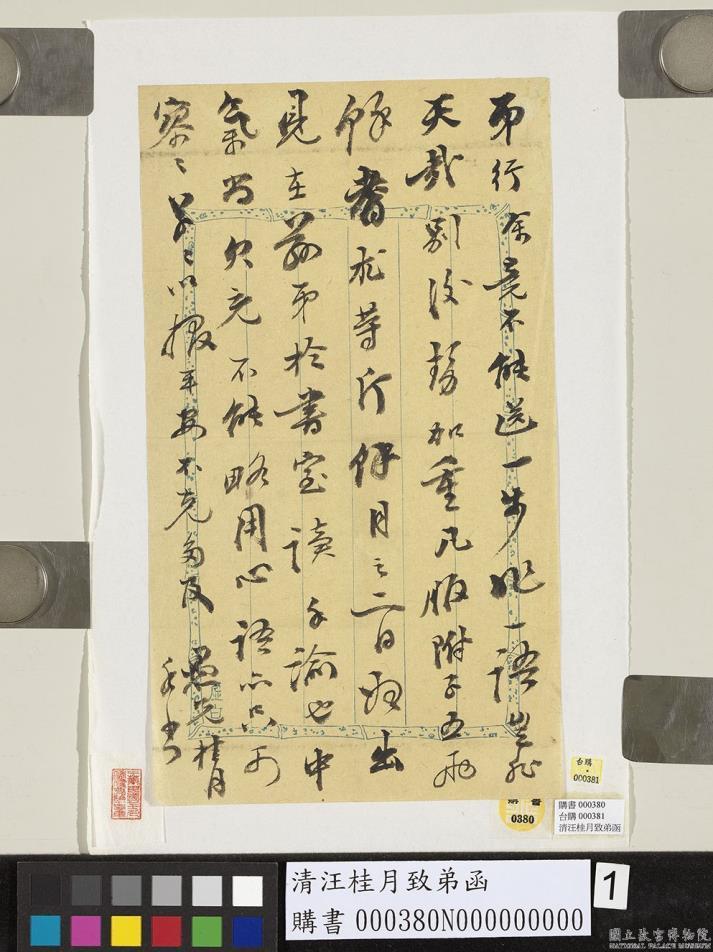 弟行余竟不能送一步兆一语岂非
天哉别後務加重凡服附子五兩
餘者朮等斤餘月之二日始出
見在兹弟於書室讀手諭也中
氣尚欠充不能略用心語亦只可
寥〻草〻以报平安不克多及
愚兄桂月
手书
台購
000381
購書
0380
購書 000380
台購 000381
清汪桂月致弟函
清汪桂月致弟函
購書 000380N000000000
1
國立故宮博物院
NATIONAL PALACE MUSEUM